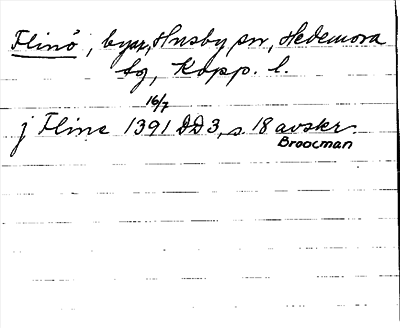 Flinö, byar, Husby sn, Hedemora
tg, Kopp. l.
16/7
j Fline 1391 DD3, s. 18 avskr.
Broocman